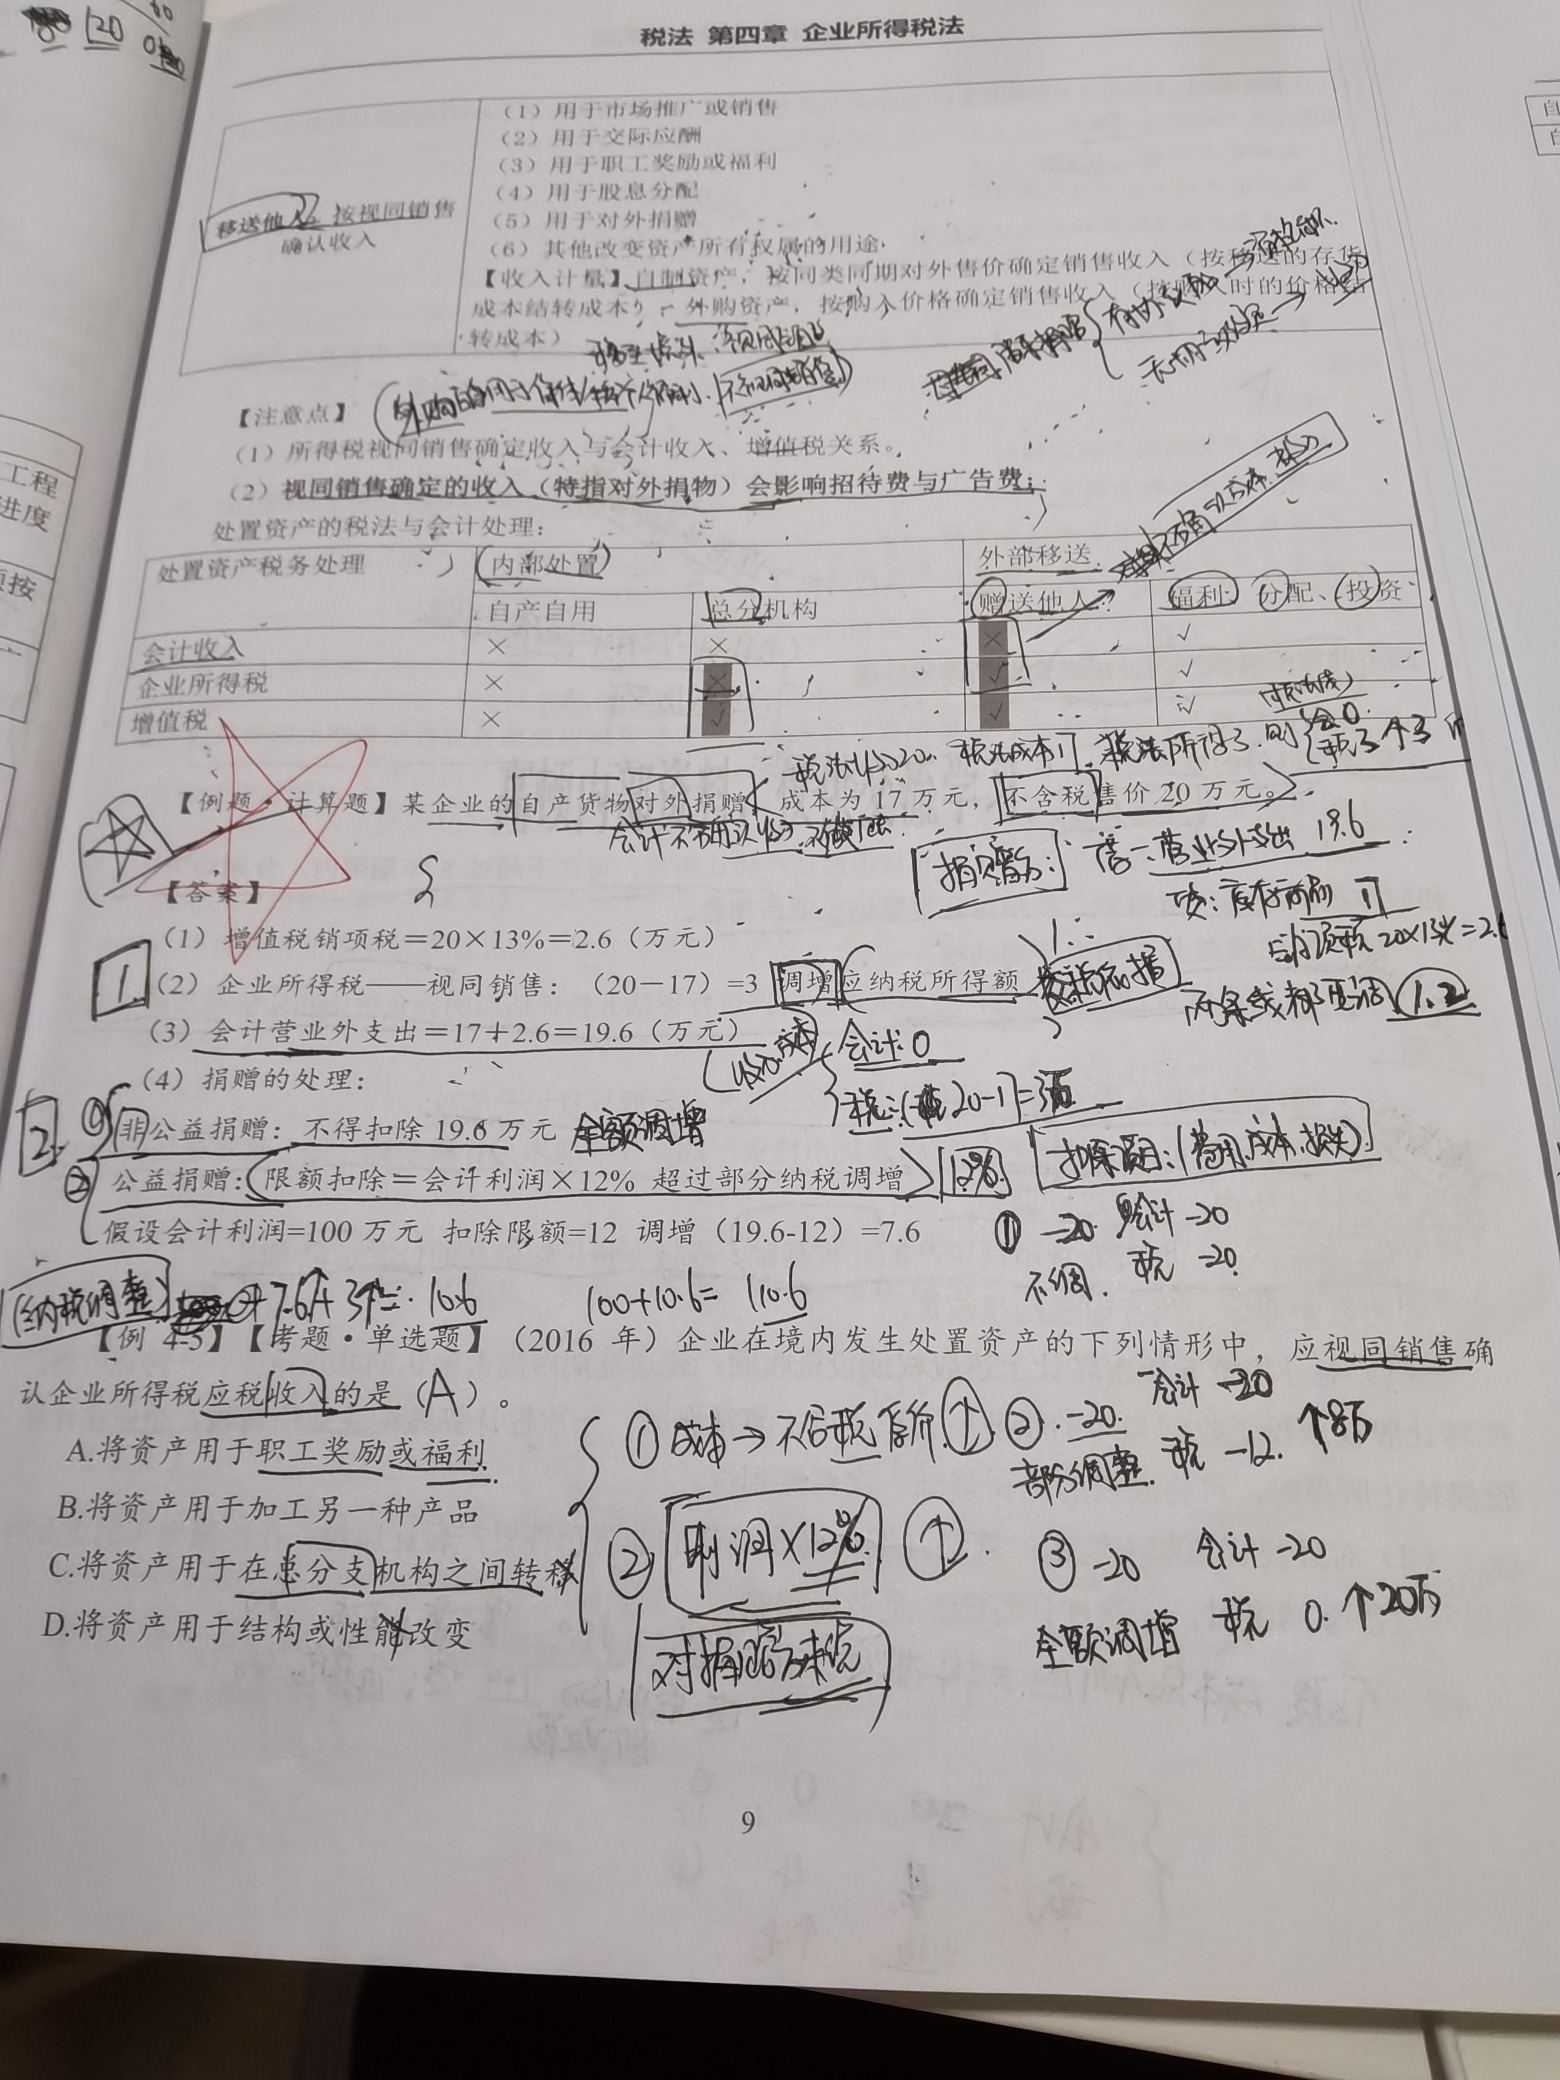 税法 第四章 企业所得税法
120
移送他人：按视同销售
确认收入
（1）用于市场推广或销售
（2）用于交际应酬
（3）用于职工奖励或福利
（4）用于股息分配
（5）用于对外捐赠
（6）其他改变资产所有权属的用途
【收入计量】自制资产，按同类同期对外售价确定销售收入（按移送的存货
成本结转成本）；外购资产，按购入价格确定销售收入（按购入时的价格结
转成本）
【注意点】
（1）所得税视同销售确定收入与会计收入、增值税关系。
（2）视同销售确定的收入（特指对外捐物）会影响招待费与广告费；
处置资产的税法与会计处理：
处置资产税务处理
内部处置
外部移送
自产自用
总分机构
赠送他人
福利、分配、投资
会计收入 × × × √
企业所得税 × × √ √
增值税 × √ √ √
税法收入20 税法成本17 税法所得3
【例题·计算题】某企业的自产货物对外捐赠，成本为 17 万元，不含税售价 20 万元。
会计不确认收入
捐赠方：
借：营业外支出 19.6
【答案】
贷：库存商品 17
（1）增值税销项税＝20×13%＝2.6（万元）
销项税 20×13%=2.6
1
（2）企业所得税——视同销售：（20－17）=3 调增应纳税所得额
两条线都要调 1、2
（3）会计营业外支出＝17＋2.6＝19.6（万元）
收入成本
会计：0
（4）捐赠的处理：
2.
① 非公益捐赠：不得扣除 19.6 万元 全额调增
② 公益捐赠：限额扣除＝会计利润×12% 超过部分纳税调增
12%
扣除项目：（费用、成本、损失）
假设会计利润=100 万元 扣除限额=12 调增（19.6-12）=7.6
① -20 会计 -20
不调. 税 -20
纳税调整
+7.6+3= 10.6
100+10.6= 110.6
【例 4-5】【考题·单选题】（2016 年）企业在境内发生处置资产的下列情形中，应视同销售确
认企业所得税应税收入的是（A）。
A.将资产用于职工奖励或福利
B.将资产用于加工另一种产品
C.将资产用于在总分支机构之间转移
D.将资产用于结构或性能改变
② -20. 会计 -20
部分调整. 税 -12. ↑8万
② 利润×12% ↑
③ -20 会计 -20
全额调增 税 0. ↑20万
9